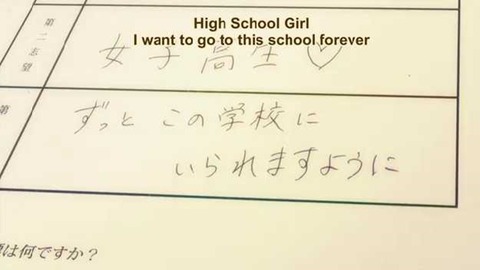 High School Girl
I want to go to this school forever
第二志望
女子高生♡
第
ずっとこの学校に
いられますように
は何ですか？